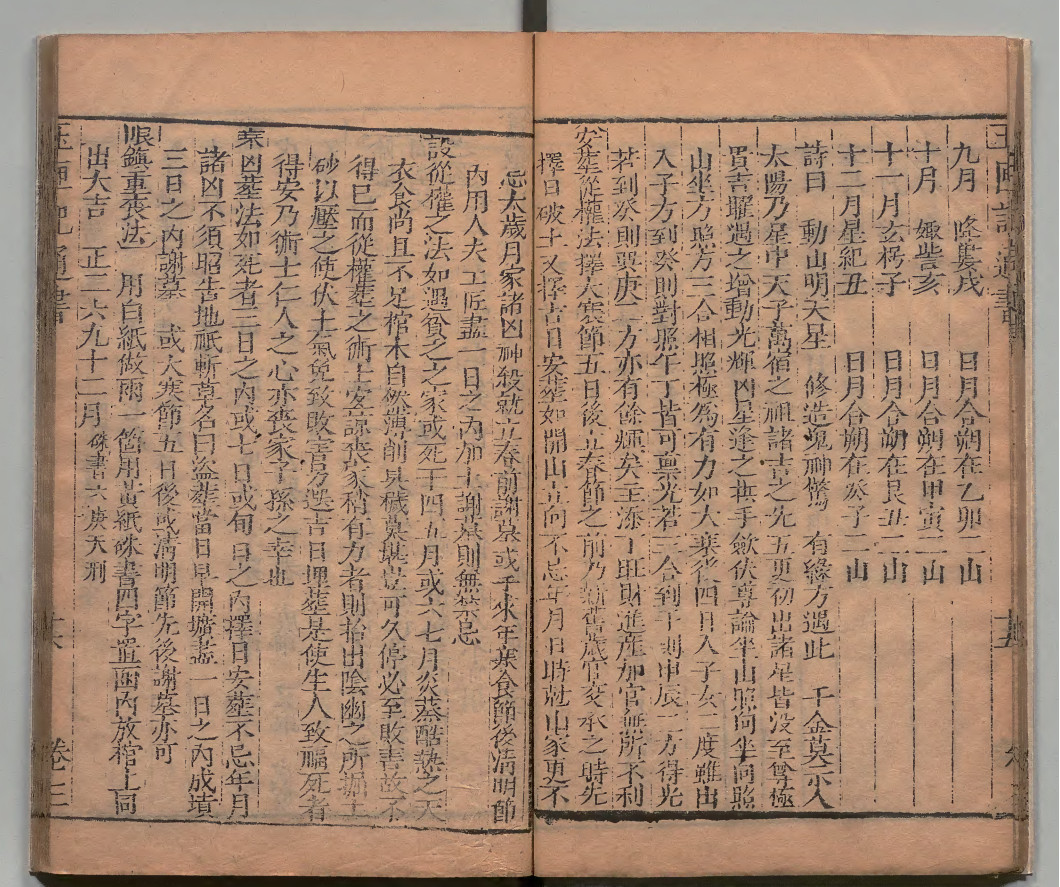 九月　降婁戌　日月合朔在乙卯二山
十月　娵訾亥　日月合朔在甲寅二山
十一月玄枵子　日月合朔在艮丑二山
十二月星紀丑　日月合朔在癸子二山
詩曰　動山明天星　修造鬼神驚　有緣方遇此　千金莫示人
太陽乃星中天子萬宿之祖諸吉之先五更初出諸星皆沒至尊極
貴吉曜遇之增動光輝凶星逢之拱手歛伏尊論坐山照向坐向照
山坐方照方三合相照極為有力如大寒後四日入子女二度雖出
入子方到癸則對照午丁皆可稟光若三合到
若到癸則與庚一方亦有餘輝矣主添丁旺財進產加官無所不利
安塟從權法擇大寒節五日後立春節之前乃新舊歲官交承之時先
擇日破土又擇吉日安塟如開山立向不忌年月日時尅山家更不
忌太歲月家諸凶神殺就立春前謝墓或于來年寒食節後清明節
內用人夫工匠盡一日之內加土謝墓則無禁忌
設從權之法如遇貧乏之家或死于四五月或六七月炎蒸酷熱之天
衣食尚且不足棺木自然薄削臭穢莫堪豈可久停必至敗害故不
得已而從權塟之術士宜諒喪家稍有力者則抬出陰幽之所掘土
砂以壓之使伏土氣免致敗害方選吉日埋塟是使生人致福死者
得安乃術士仁人之心亦喪家子孫之幸也
乘凶塟法如死者三日之內或七日或旬日之內擇日安塟不忌年月
諸凶不須昭告地祇斬草名曰盗塟當日早開壙盡一日之內成墳
三日之內謝墓　或大寒節五日後或清明節先後謝墓亦可
眼鎮重喪法　用白紙做兩一箇用黃紙硃書四字置函內放棺上同
出大吉　正三六九十二月硃書六庚天刑
卷三